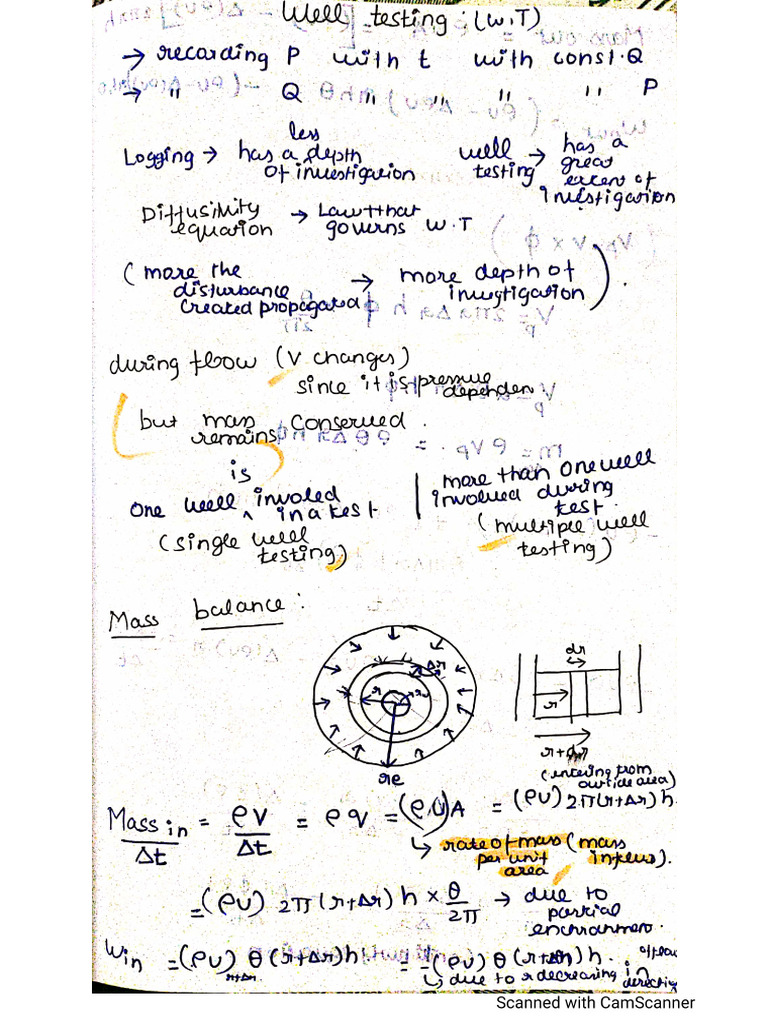 Well testing : (W.T)
→ recording P with t with const. Q
→ " Q " " " " P
Logging → has a less depth of investigation
well testing → has a great extent of investigation
Diffusivity equation → Law that governs W.T
(more the disturbance created propogated → more depth of investigation).
during flow (V changes)
since it is pressure dependen.
but mass remains conserved.
one well is involed in a test
(single well testing)
more than one well involved during test.
(multiple well testing)
Mass balance:
Δr
r
re
dr
r
r+dr
(entering from outside area)
Mass in / Δt = ρV / Δt = ρ q = (ρ.U) A = (ρU) 2π(r+Δr) h
↳ rate of mass per unit area (mass influx).
= (ρU) 2π(r+Δr) h × θ/2π → due to partial
Win = (ρU) r+Δr θ (r+Δr) h = -(ρU) θ (r+Δr) h.
↳ due to r decreasing in
Scanned with CamScanner